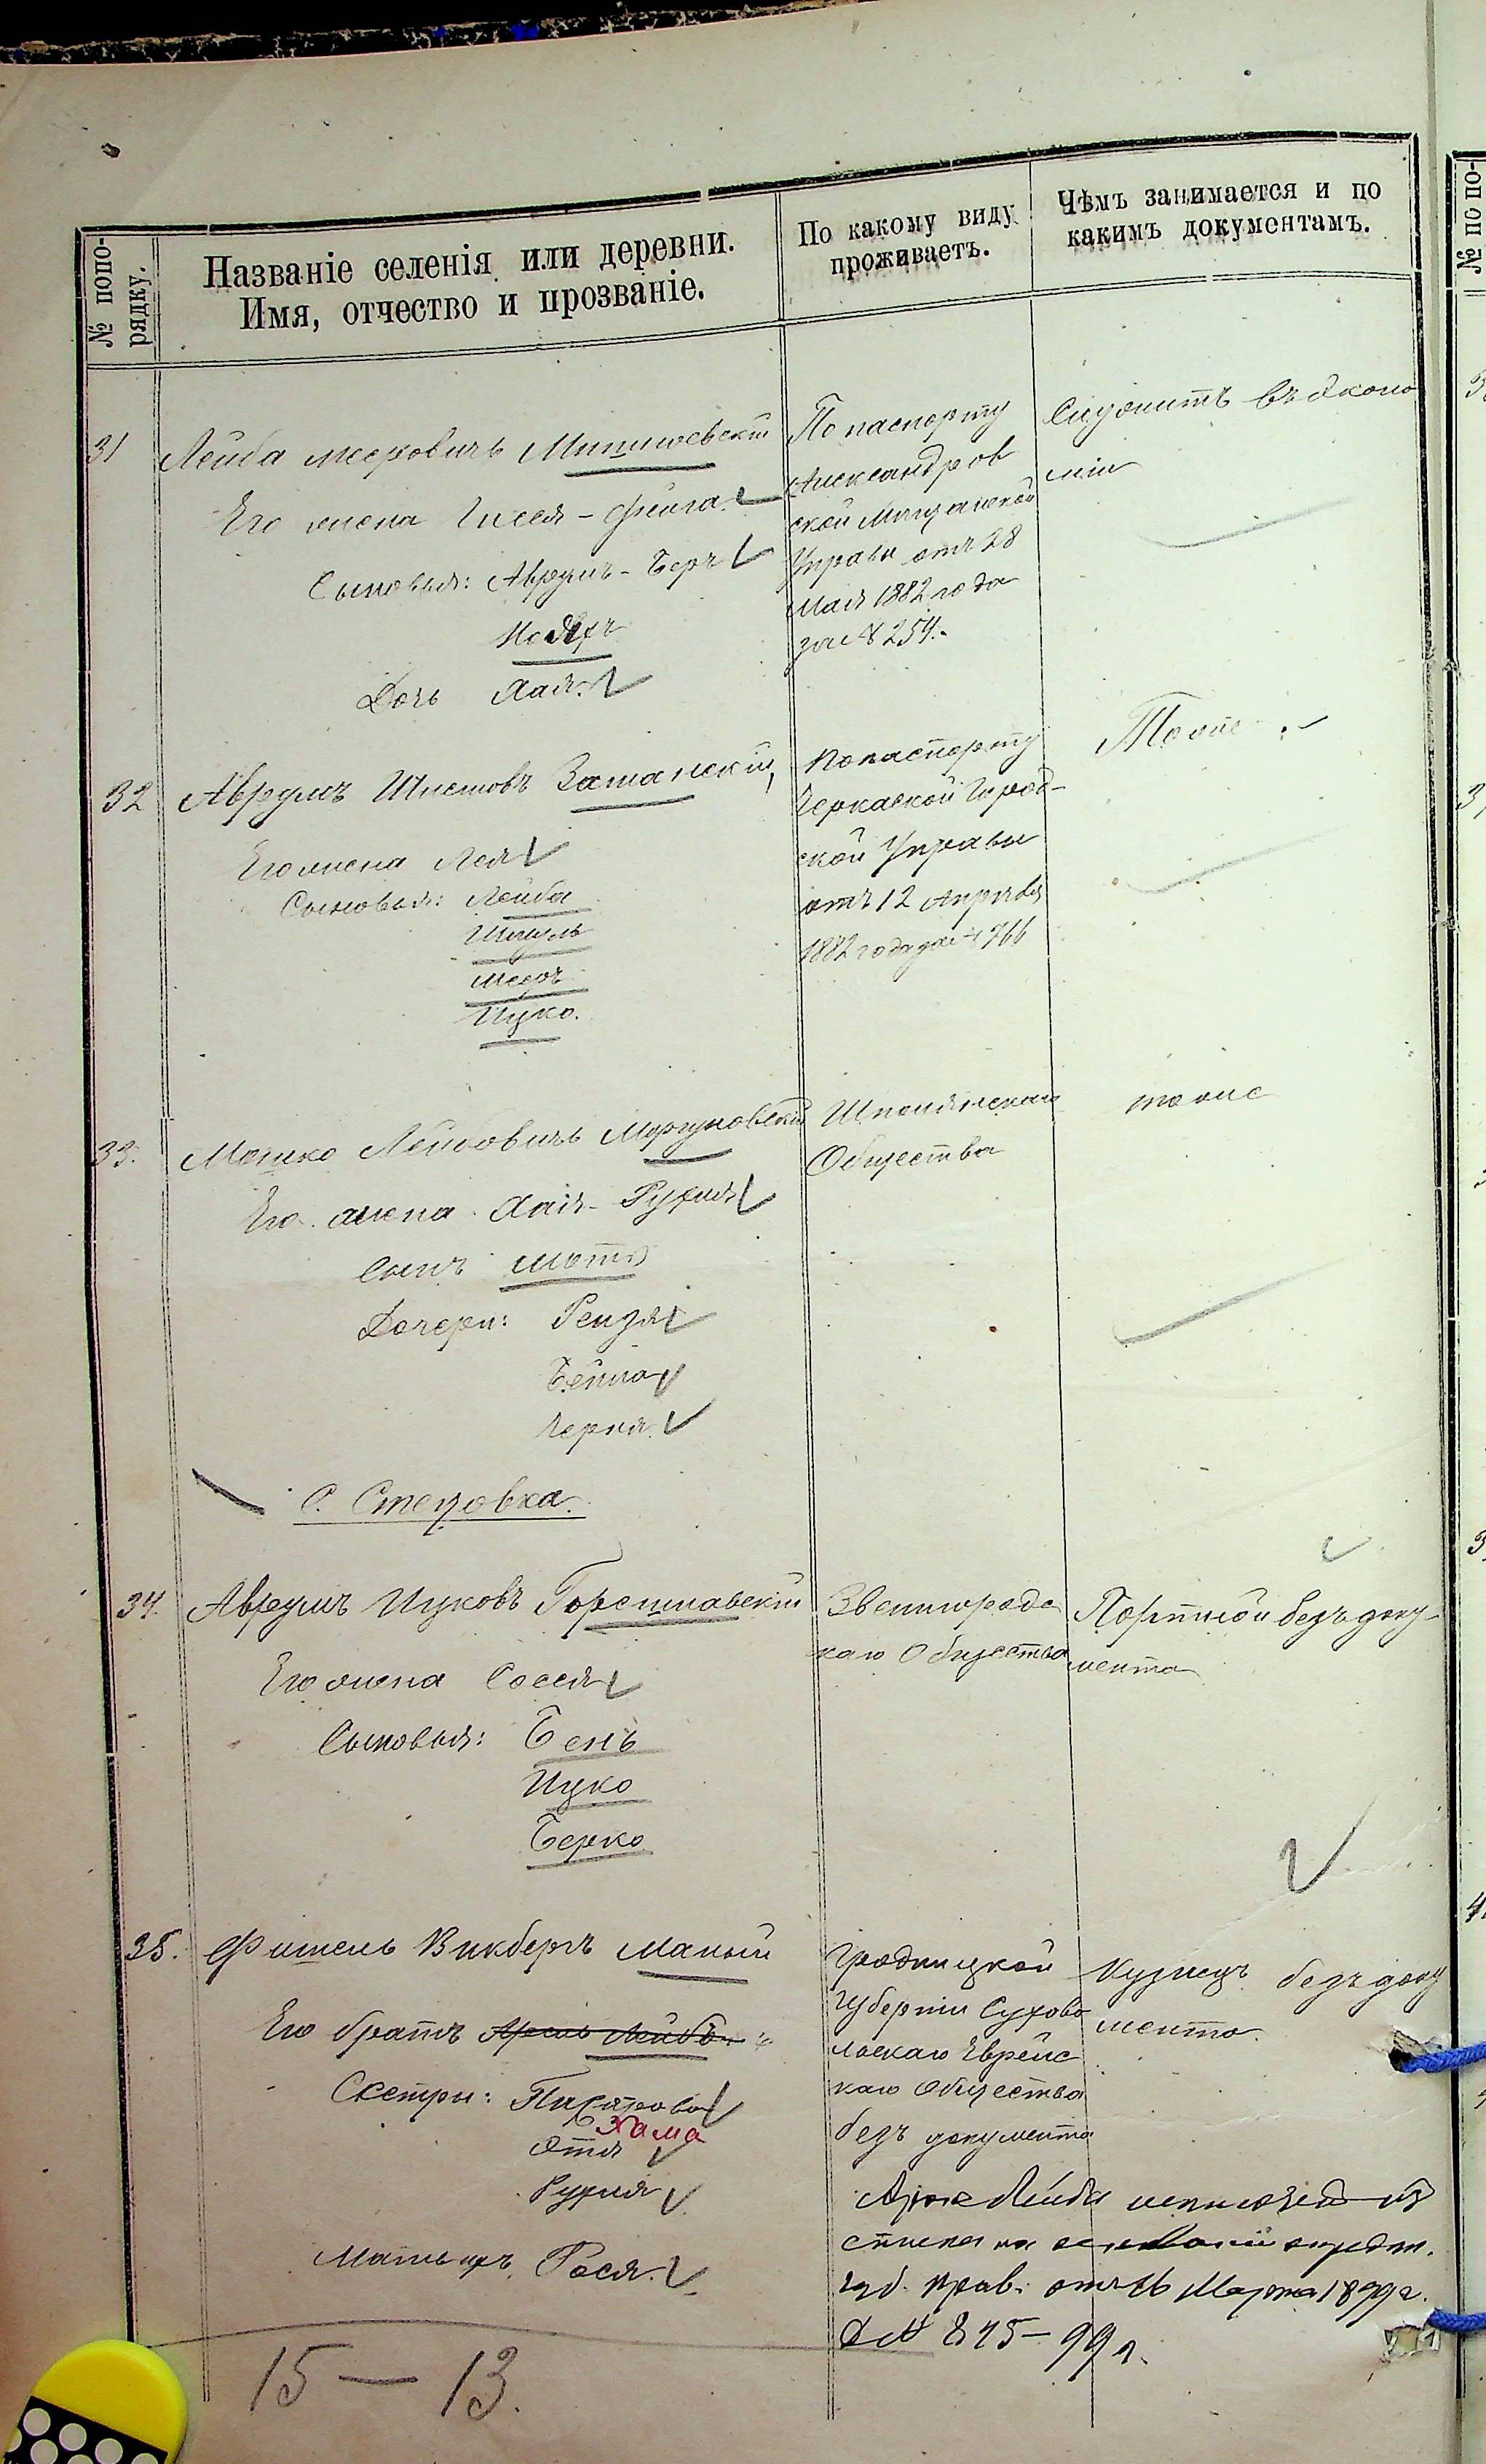 № попо-
рядку.
Названіе селенія или деревни.
Имя, отчество и прозваніе.
По какому виду
проживаетъ.
Чѣмъ занимается и по
какимъ документамъ.
№ по по-
31
Лейба Мееровичъ
Его жена Гисея-Фейга
Сыновья: Аврумъ-Беръ
Дочь Хая
По паспорту
Александров
ской Мѣщанской
Управы отъ 28
Мая 1882 года
за № 254.
Служитъ въ эконо
міи
32
Аврумъ
Его жена Лея
Сыновья: Лейба
Шмуль
Мееръ
Ицко.
По паспорту
Черкаской Город-
ской Управы
отъ 12 Апрѣля
1882 года за № 766
Тоже
33.
Мошко Лейбовичъ Моргуновскій
Его жена Хая-Рухля
Сынъ Мотя
Дочери: Рейзя
Бейла
Черня.
Шполянскаго
Общества
тоже
С. Стецовка.
34.
Аврумъ Ицковъ
Его жена Сося
Сыновья: Бень
Ицко
Берко
Звенигородс
каго Общества
Портной безъ доку-
мента
35.
Фишель Викберъ Малый
Его братъ Арель Лейба
Сестры:
Хама
Этя
Рухля
Мать ихъ Рося.
Гродницкой
Губерніи Сухово
льскаго Еврейс
каго Общества
безъ документа
Кузнецъ безъ доку
мента.
Лейба исключенъ из
списка на основаніи опредѣл.
губ. прав. отъ 16 Марта 1899 г.
№ 845-99 г.
15 — 13.